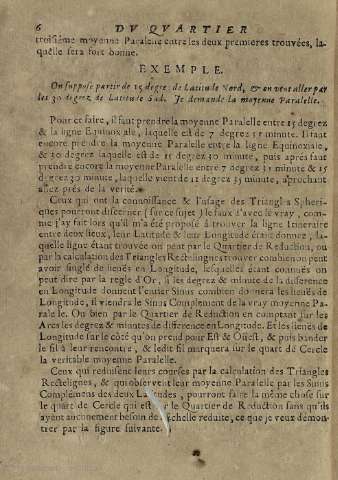 6 DU QUARTIER
troisiéme moyenne Paralelle entre les deux premieres trouvées, la-
quelle sera fort bonne.
EXEMPLE.
On suppose partir de 15 degrez de Latitude Nord, & on veut aller par
les 30 degrez de Latitude Sud. Je demande la moyenne Paralelle.
Pour ce faire, il faut prendre la moyenne Paralelle entre 15 degrez
& la ligne Equinoxiale, laquelle est de 7 degrez 35 minute. Il faut
encore prendre la moyenne Paralelle entre la ligne Equinoxiale,
& 30 degrez laquelle est de 15 degrez 30 minute, puis aprés faut
prendre encore la moyenne Paralelle entre 7 degrez 35 minute & 15
degrez 30 minute, laquelle vient de 11 degrez 35 minute, aprochant
assez prés de la verité.
Ceux qui ont la connoissance & l'usage des Triangles Spheri-
ques pourront discerner (sur ce sujet) le faux d'avec le vray, com-
me j'ay fait lors qu'il m'a été proposé à trouver la ligne Itineraire
entre deux lieux, leur Latitude & leur Longitude étant donnée, la-
quelle ligne étant trouvée on peut par le Quartier de Reduction, ou
par la calculation des Triangles Rectelingnes trouver combien on peut
avoir singlé de lieuës en Longitude, lesquelles étant connuës on
peut dire par la regle d'Or, si les degrez & minute de la difference
en Longitude donnent l'entier Sinus combien donnera les lieuës de
Longitude, il viendra le Sinus Complement de la vray moyenne Pa-
ralelle. Ou bien par le Quartier de Reduction en comptant sur les
Arcs les degrez & minutes de difference en Longitude. Et les lieuës de
Longitude sur le côté qu'on prend pour Est & Oüest, & puis bander
le fil à leur rencontre, & ledit fil marquera sur le quart de Cercle
la veritable moyenne Paralelle.
Ceux qui reduisent leurs courses par la calculation des Triangles
Rectelignes, & qui observent leur moyenne Paralelle par les Sinus
Complemens des deux Latitudes, pourront faire la même chose sur
le quart de Cercle qui est sur le Quartier de Reduction sans qu'ils
ayent aucunement besoin de l'échelle reduite, ce que je veux démon-
trer par la figure suivante.